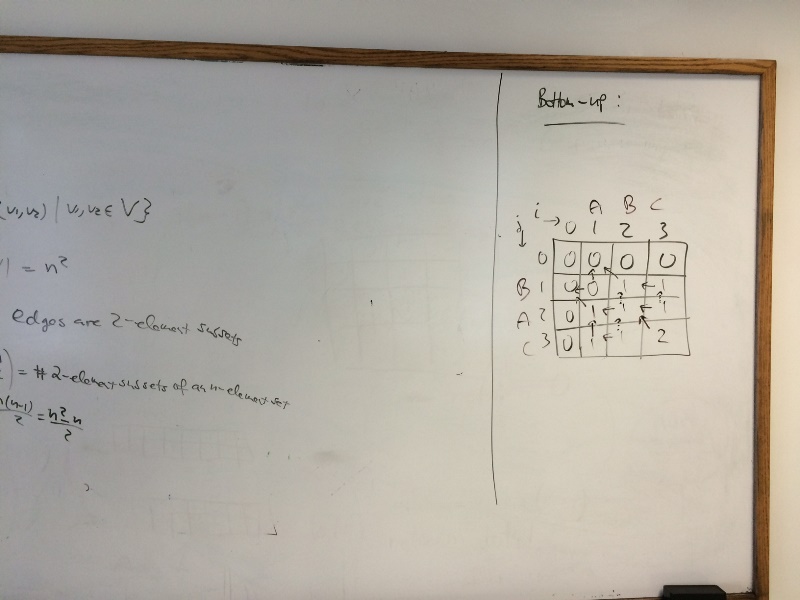 (v₁,v₂) | v₁,v₂ ∈ V}
| = n²
edges are 2-element subsets
) = # 2-element subsets of an n-element set
n(n-1)/2 = n²-n/2
Bottom-up:
i → A B C
j ↓ 0 1 2 3
0 0 0 0 0
B 1 0 0 1 1
A 2 0 1 1 1
C 3 0 1 1 2